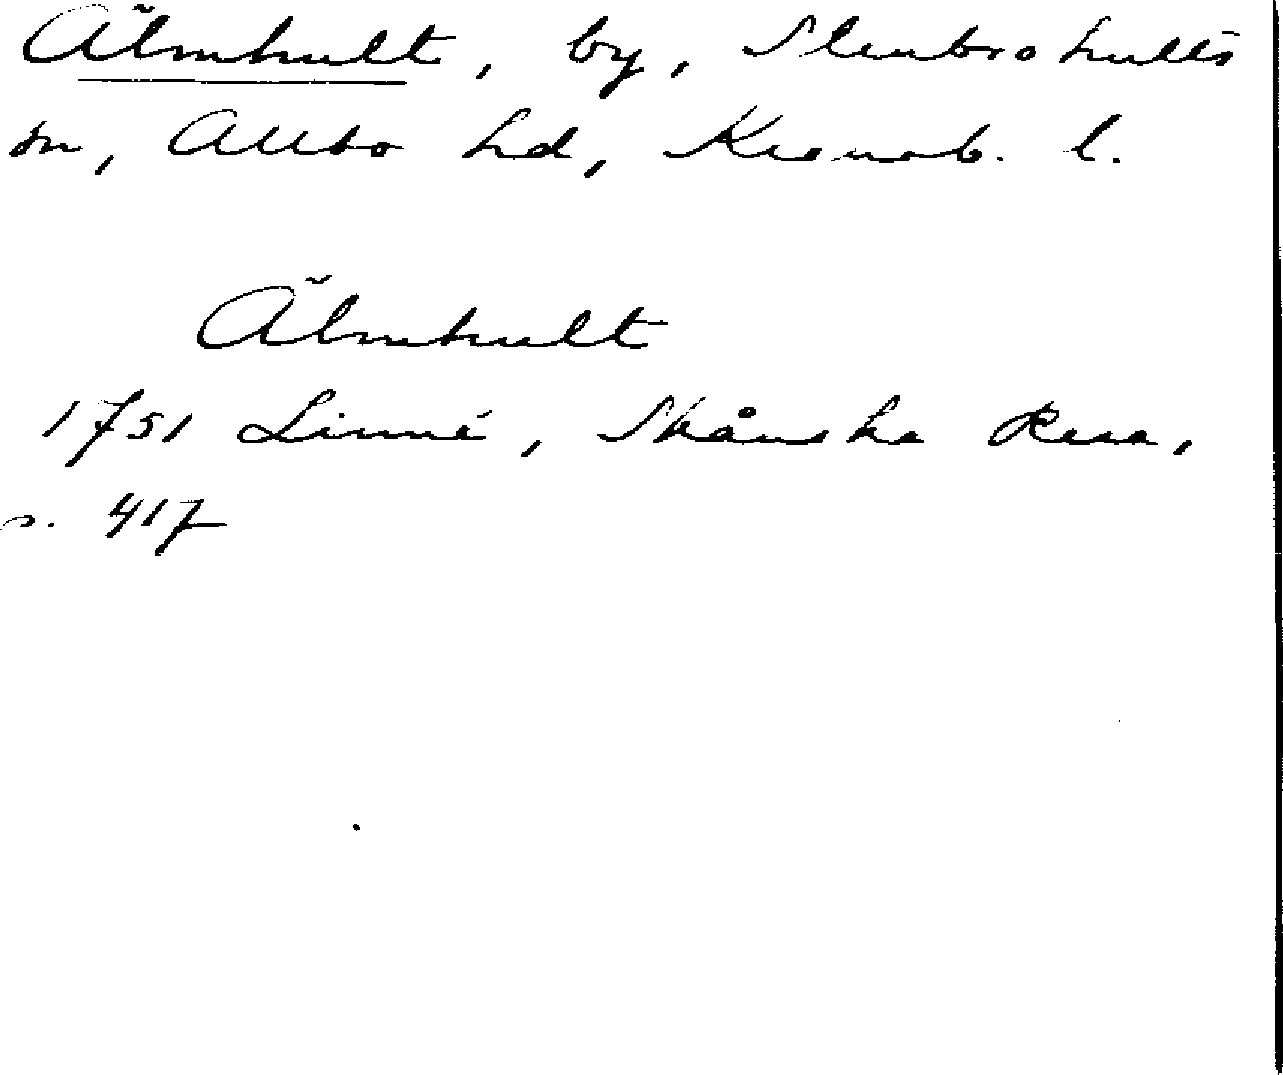 Älmhult, by, Stenbrohults
sn, Allbo hd, Kronob. l.
Älmhult
1751 Linné, Skånska Resa,
s. 417